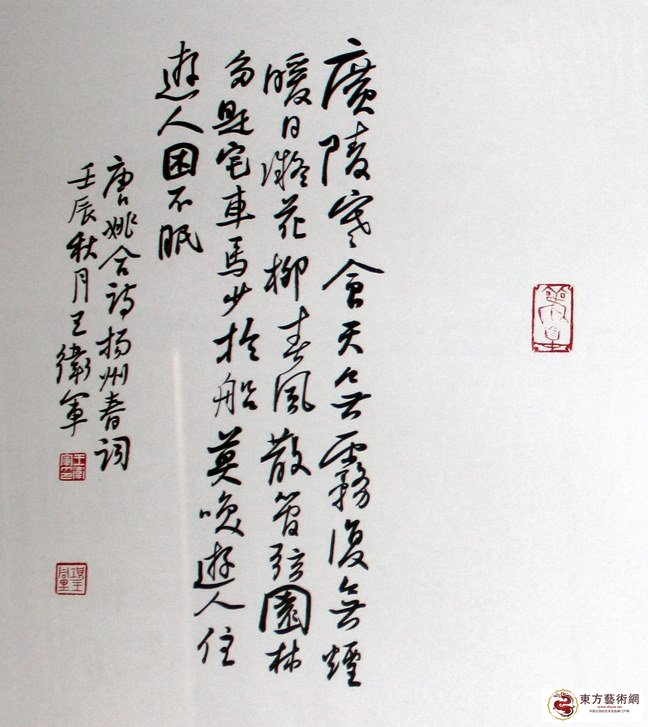 廣陵寒食天無霧復無煙
暖日凝花柳春風散管弦園林
多是宅車馬少於船莫喚遊人住
遊人困不眠
唐姚合詩揚州春詞
壬辰秋月王衛軍
東方藝術網